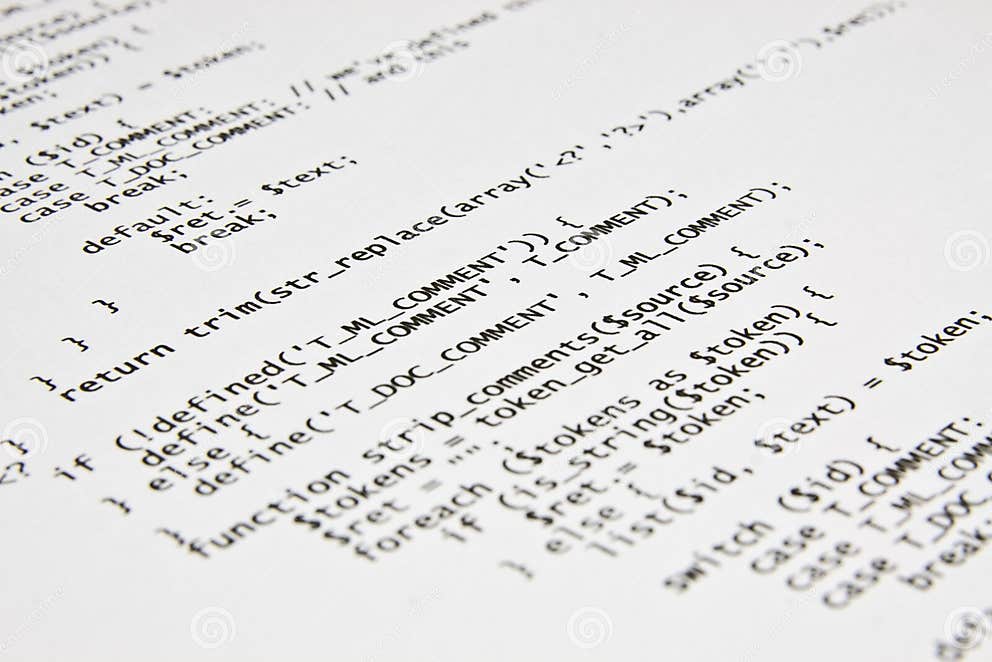 $token)) {
, $text) = $token;
($id) {
case T_COMMENT:
case T_ML_COMMENT: // we've defined
case T_DOC_COMMENT: // and this
break;
default:
$ret .= $text;
break;
}
}
}
return trim(str_replace(array('<?','?>'),array('',''),$ret));
}
<?
if (!defined('T_ML_COMMENT')) {
define('T_ML_COMMENT', T_COMMENT);
} else {
define('T_DOC_COMMENT', T_ML_COMMENT);
}
function strip_comments($source) {
$tokens = token_get_all($source);
$ret = "";
foreach ($tokens as $token) {
if (is_string($token)) {
$ret.= $token;
} else {
list($id, $text) = $token;
switch ($id) {
case T_COMMENT:
case T_ML_COM
case T_DOC_
break;